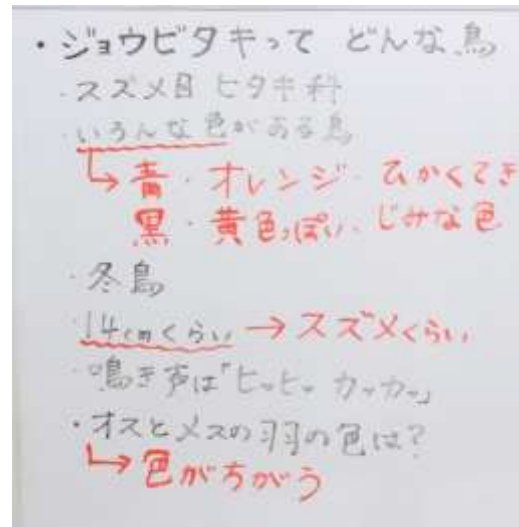 ・ジョウビタキって どんな鳥
・スズメ目 ヒタキ科
・いろんな色がある鳥
↳青・オレンジ・ひかくてき
黒・黄色っぽい・じみな色
・冬鳥
・14cmくらい→スズメくらい
・鳴き声は「ヒッヒッ カッカッ」
・オスとメスの羽の色は?
↳色がちがう